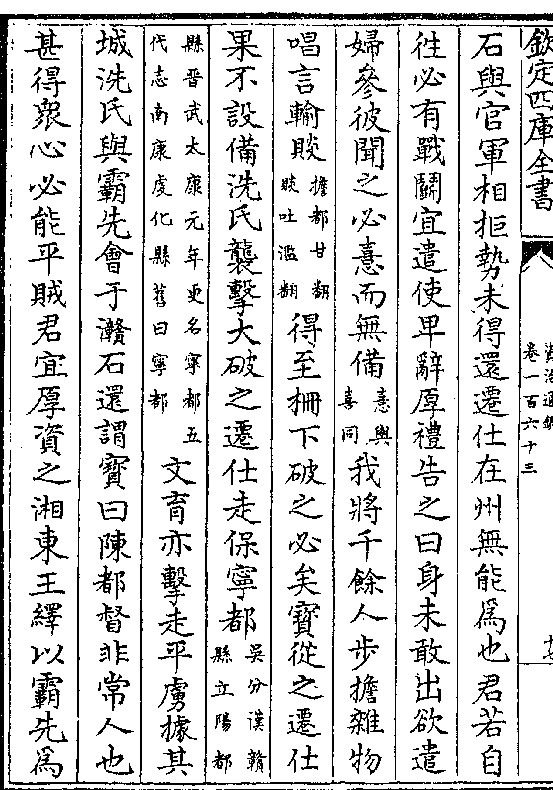 欽定四庫全書
資治通鑑
卷一百六十三
石與官軍相拒勢未得還遷仕在州無能爲也君若自
徃必有戰鬬宜遣使卑辭厚禮告之曰身未敢出欲遣
婦參彼聞之必憙而無備憙與喜同我將千餘人步擔雜物
唱言輸賧擔都甘翻賧吐濫翻得至柵下破之必矣寶從之遷仕
果不設備洗氏襲擊大破之遷仕走保寧都吳分漢贛縣立陽都
縣晉武太康元年更名寧都五代志南康虔化縣舊曰寧都文育亦擊走平虜據其
城洗氏與霸先會于灨石還謂寶曰陳都督非常人也
甚得衆心必能平賊君宜厚資之湘東王繹以霸先爲